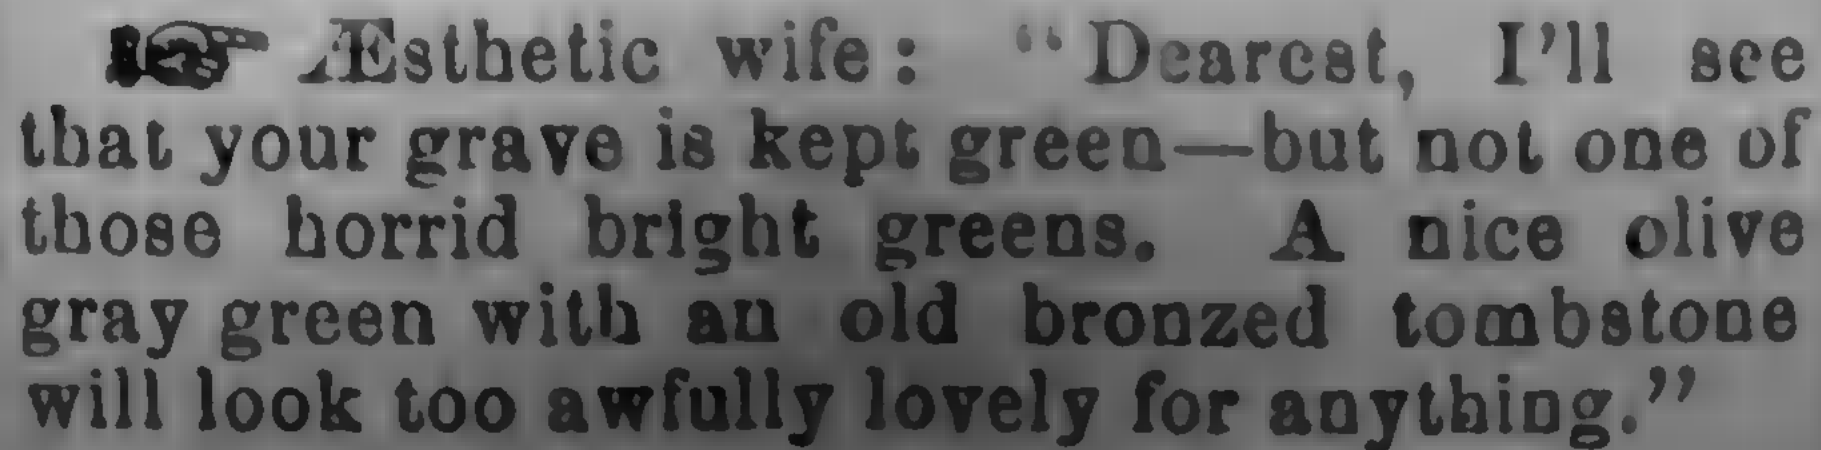 ☞ Æsthetic wife: "Dearest, I'll see
that your grave is kept green—but not one of
those horrid bright greens. A nice olive
gray green with an old bronzed tombstone
will look too awfully lovely for anything."